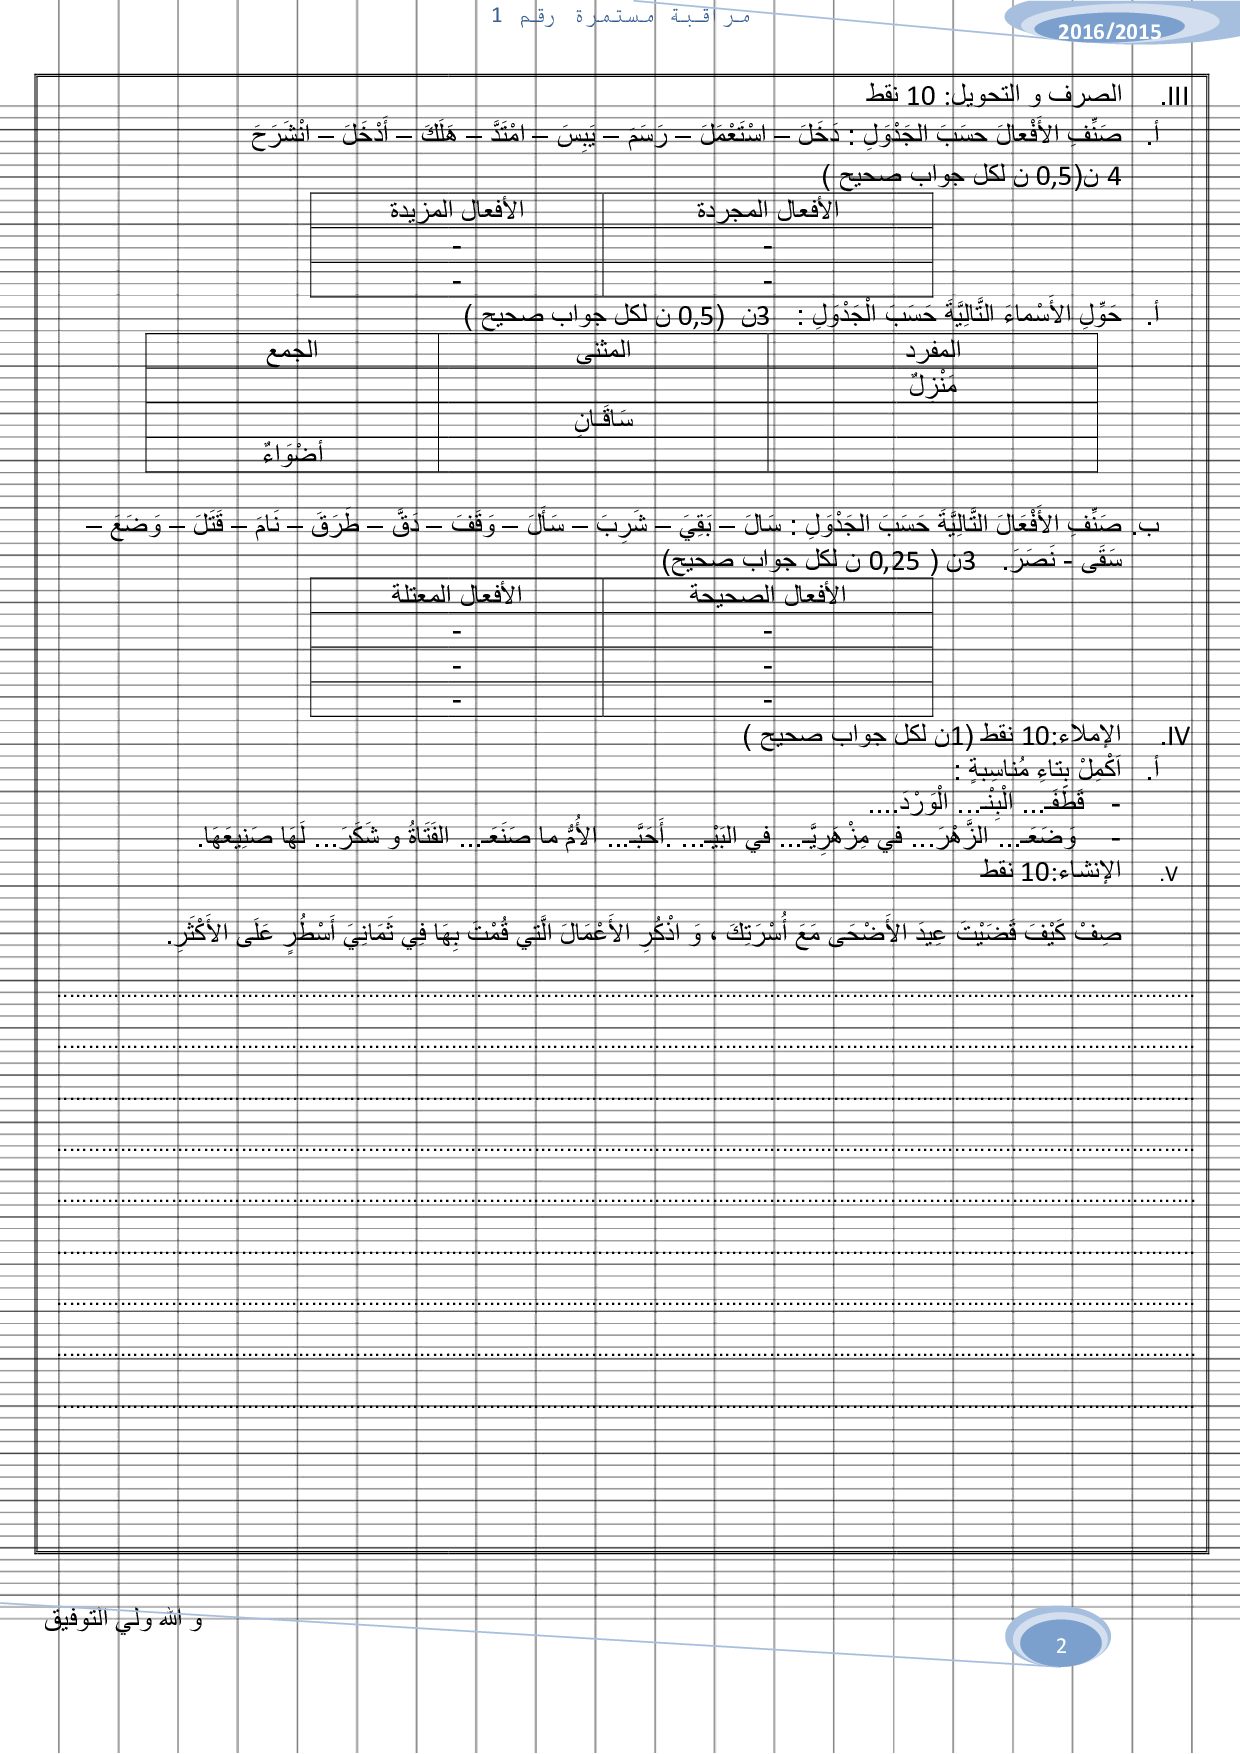 مراقبة مستمرة رقم 1
2016/2015
III. الصرف و التحويل: 10 نقط
أ. صَنِّفِ الأَفْعالَ حسَبَ الجَدْوَلِ : دَخَلَ – اسْتَعْمَلَ – رَسَمَ – يَبِسَ – امْتَدَّ – هَلَكَ – أَدْخَلَ – انْشَرَحَ
4 ن(0,5 ن لكل جواب صحيح )
الأفعال المجردة الأفعال المزيدة
- -
- -
أ. حَوِّلِ الأَسْماءَ التَّالِيَّةَ حَسَبَ الْجَدْوَلِ : 3ن (0,5 ن لكل جواب صحيح )
المفرد المثنى الجمع
مَنْزِلٌ
سَاقَـانِ
أضْوَاءٌ
ب. صَنِّفِ الأَفْعَالَ التَّالِيَّةَ حَسَبَ الجَدْوَلِ : سَالَ – بَقِيَ – شَرِبَ – سَأَلَ – وَقَفَ – دَقَّ – طَرَقَ – نَامَ – قَتَلَ – وَضَعَ –
سَقَى - نَصَرَ. 3ن ( 0,25 ن لكل جواب صحيح)
الأفعال الصحيحة الأفعال المعتلة
- -
- -
- -
IV. الإملاء:10 نقط (1ن لكل جواب صحيح )
أ. اَكْمِلْ بِتاءِ مُناسِبةٍ :
- قَطَفَـ... الْبِنْـ... الْوَرْدَ....
- وَضَعَـ... الزَّهْرَ... في مِزْهَرِيَّـ... في البَيْـ... .أَحَبَّـ... الأُمُّ ما صَنَعَـ... الفَتَاةُ و شَكَرَ... لَهَا صَنِيعَهَا.
V. الإنشاء:10 نقط
صِفْ كَيْفَ قَضَيْتَ عِيدَ الأَضْحَى مَعَ أُسْرَتِكَ ، وَ اذْكُرِ الأَعْمَالَ الَّتي قُمْتَ بِهَا فِي ثَمَانِيَ أَسْطُرٍ عَلَى الأَكْثَرِ.
و الله ولي التوفيق
2